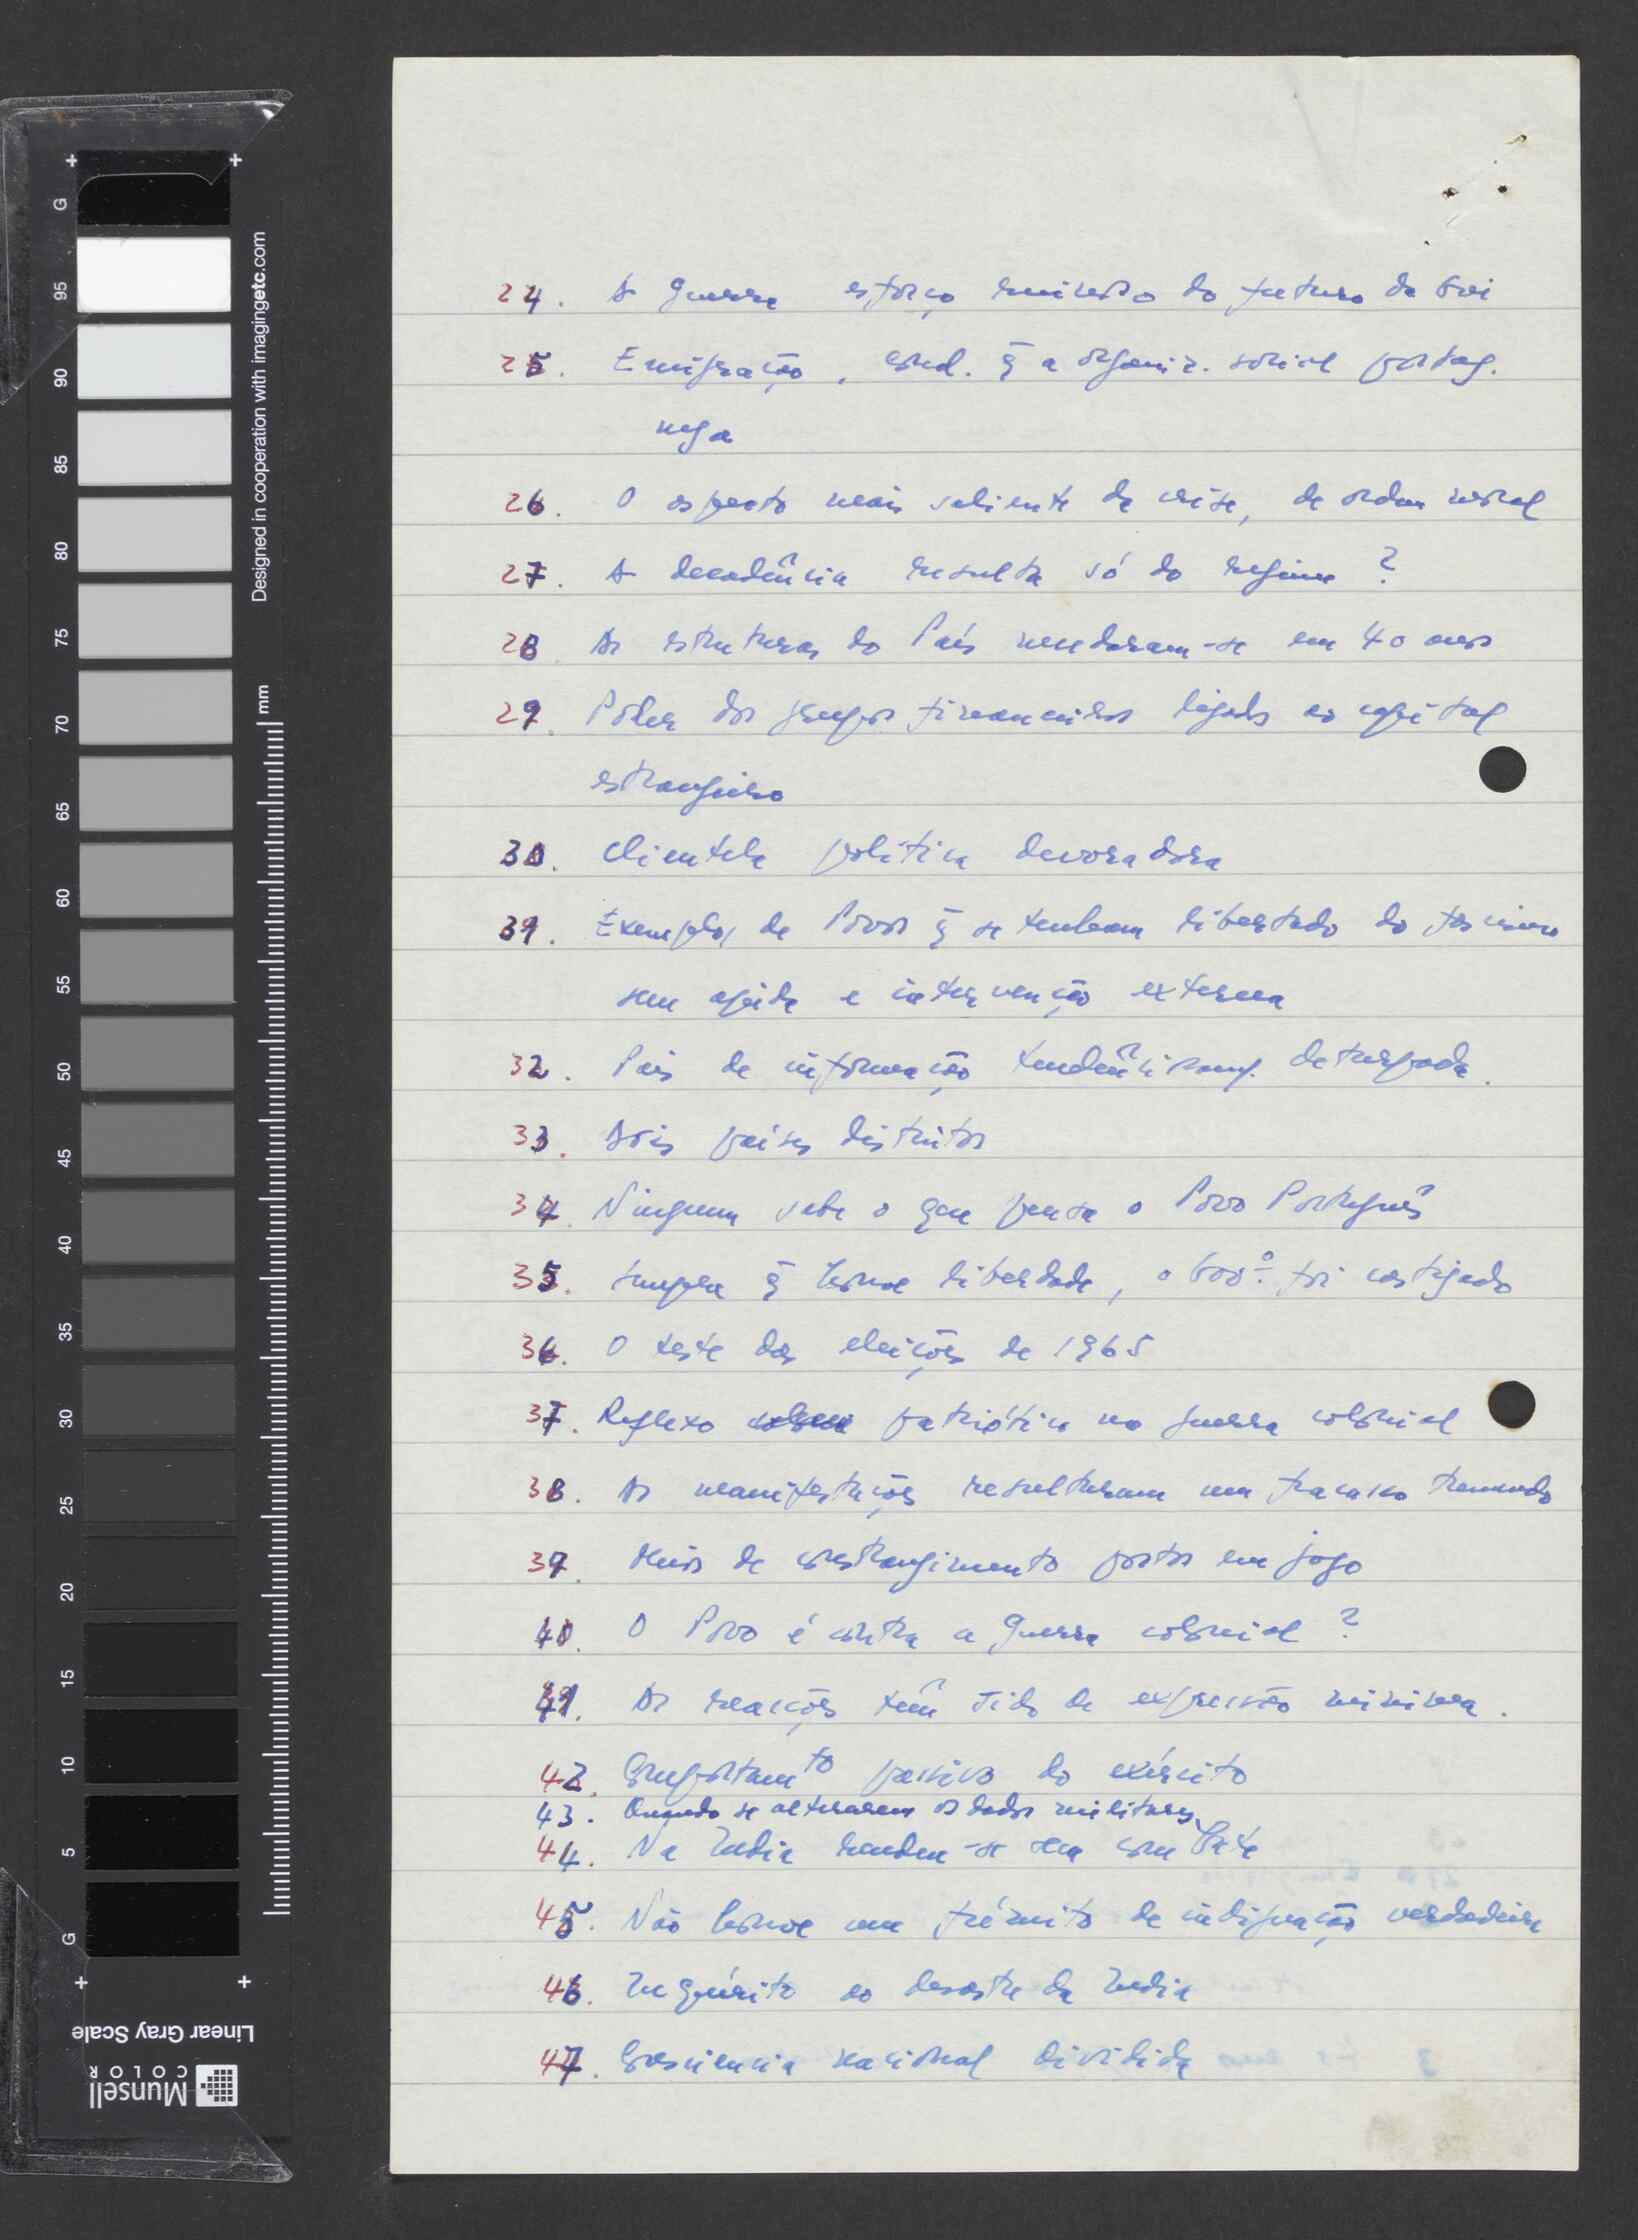 24. A guerra esforço ruinoso do futuro da
25. Emigração, cond. q̃ a organiz. social portug.
nega
26. O aspecto mais saliente da crise, de ordem moral
27. A decadência resulta só do regime ?
28 As estruturas do País mudaram-se em 40 anos
29. Poder dos grupos financeiros ligados ao capital
estrangeiro
30. Clientela politica devoradora
31. Exemplos de Povos q̃ se tenham libertado do fascismo
sem ajuda e intervenção externa
32. País de informação deturpada.
33. Dois países distintos
34. Ninguem sabe o que pensa o Povo Português
35. Sempre q̃ houve liberdade, o foi castigado
36. O teste das eleições de 1965
37. Reflexo patriótico na guerra colonial
38. As manifestações resultaram um fracasso tremendo
39. Meios de constrangimento postos em jogo
40. O Povo é contra a guerra colonial ?
41. As reacções têm sido de expressão minima.
42. Comportamto passivo do exército
43. Quando se alterarem os dados militares
44. Na India rendem-se sem combate
45. Não houve um frémito de indignação verdadeira
46. Inquérito ao desastre da India
47. Consciencia nacional dividida
Designed in cooperation with imagingetc.com
mm
G
95
90
85
80
75
70
65
60
55
50
45
40
35
30
25
20
15
10
5
G
Linear Gray Scale
Munsell
COLOR